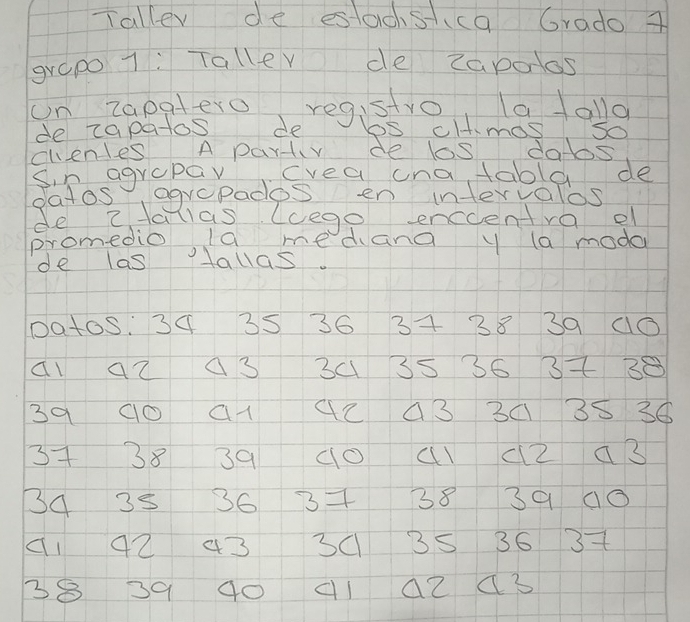 Taller de estadistica Grado 7
grupo 1: Taller de zapatos
Un zapatero registro la talla
de zapatos de los ultimos 50
clientes A partir de los datos
Sin agrupar Crea una tabla de
datos agrupados en intervalos
de 2 tallas luego encuentra el
promedio la mediana y la moda
de las tallas.
Datos: 34 35 36 37 38 39 40
41 42 43 34 35 36 37 38
39 40 41 42 43 34 35 36
37 38 39 40 41 42 43
34 35 36 37 38 39 40
41 42 43 34 35 36 37
38 39 40 41 42 43